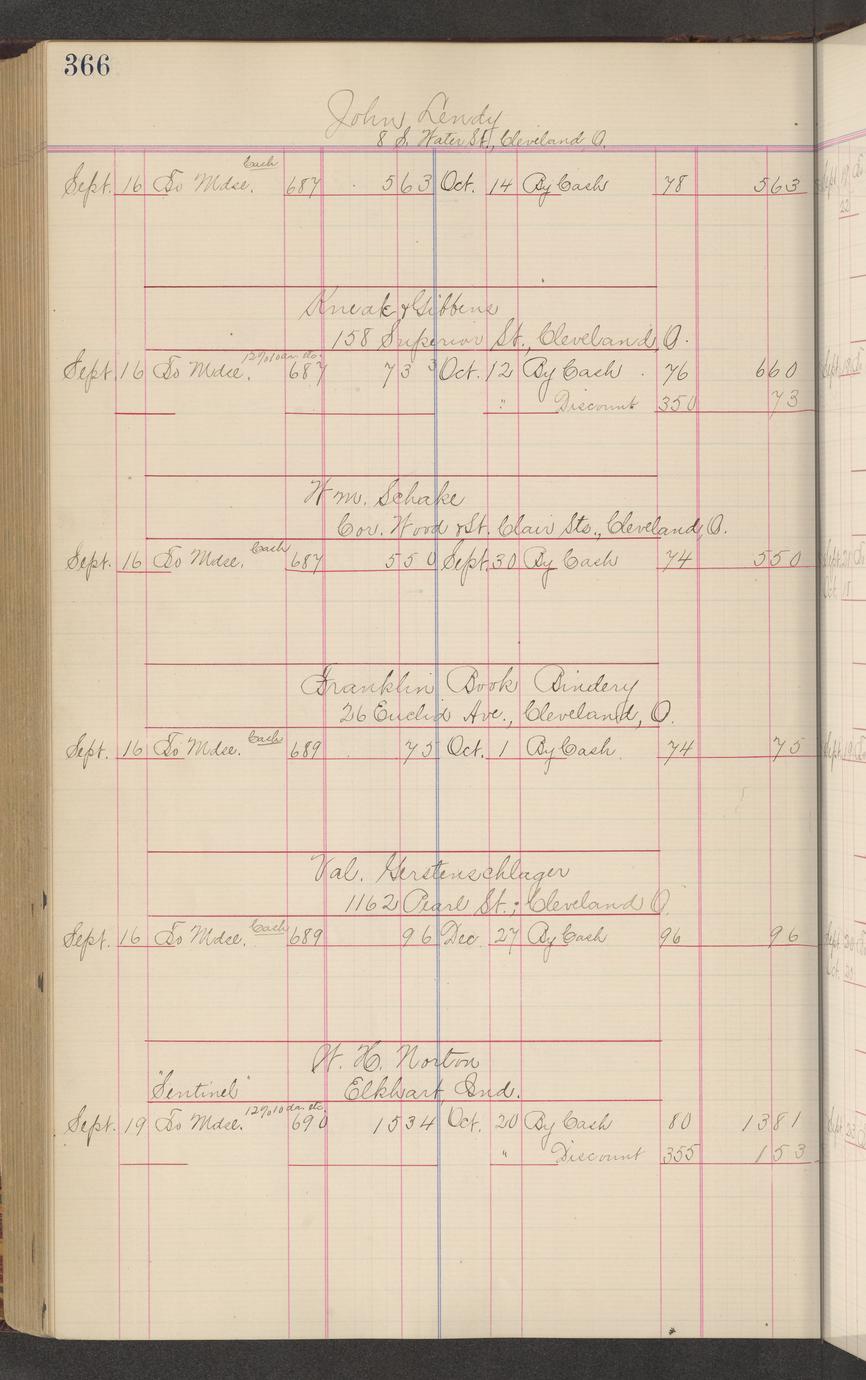 366
John Lendy
8 S. Water St., Cleveland O.
Cash
Sept. 16 To Mdse. 687 563 Oct. 14 By Cash 78 563
Kneak & Gibbens
158 Superior St., Cleveland, O.
Sept. 16 To Mdse. 687 733 Oct. 12 By Cash 76 660
" Discount 350 73
Wm. Schake
Cor. Wood & St. Clair Sts., Cleveland, O.
Cash
Sept. 16 To Mdse. 687 550 Sept. 30 By Cash 74 550
Franklin Book Bindery
26 Euclid Ave., Cleveland, O.
Cash
Sept. 16 To Mdse. 689 75 Oct. 1 By Cash 74 75
Val. Gerstenschlager
1162 Pearl St., Cleveland O.
Cash
Sept. 16 To Mdse. 689 96 Dec 27 By Cash 96 96
W. H. Norton
"Sentinel" Elkhart, Ind.
Sept. 19 To Mdse. 690 1534 Oct. 20 By Cash 80 1381
" Discount 355 153